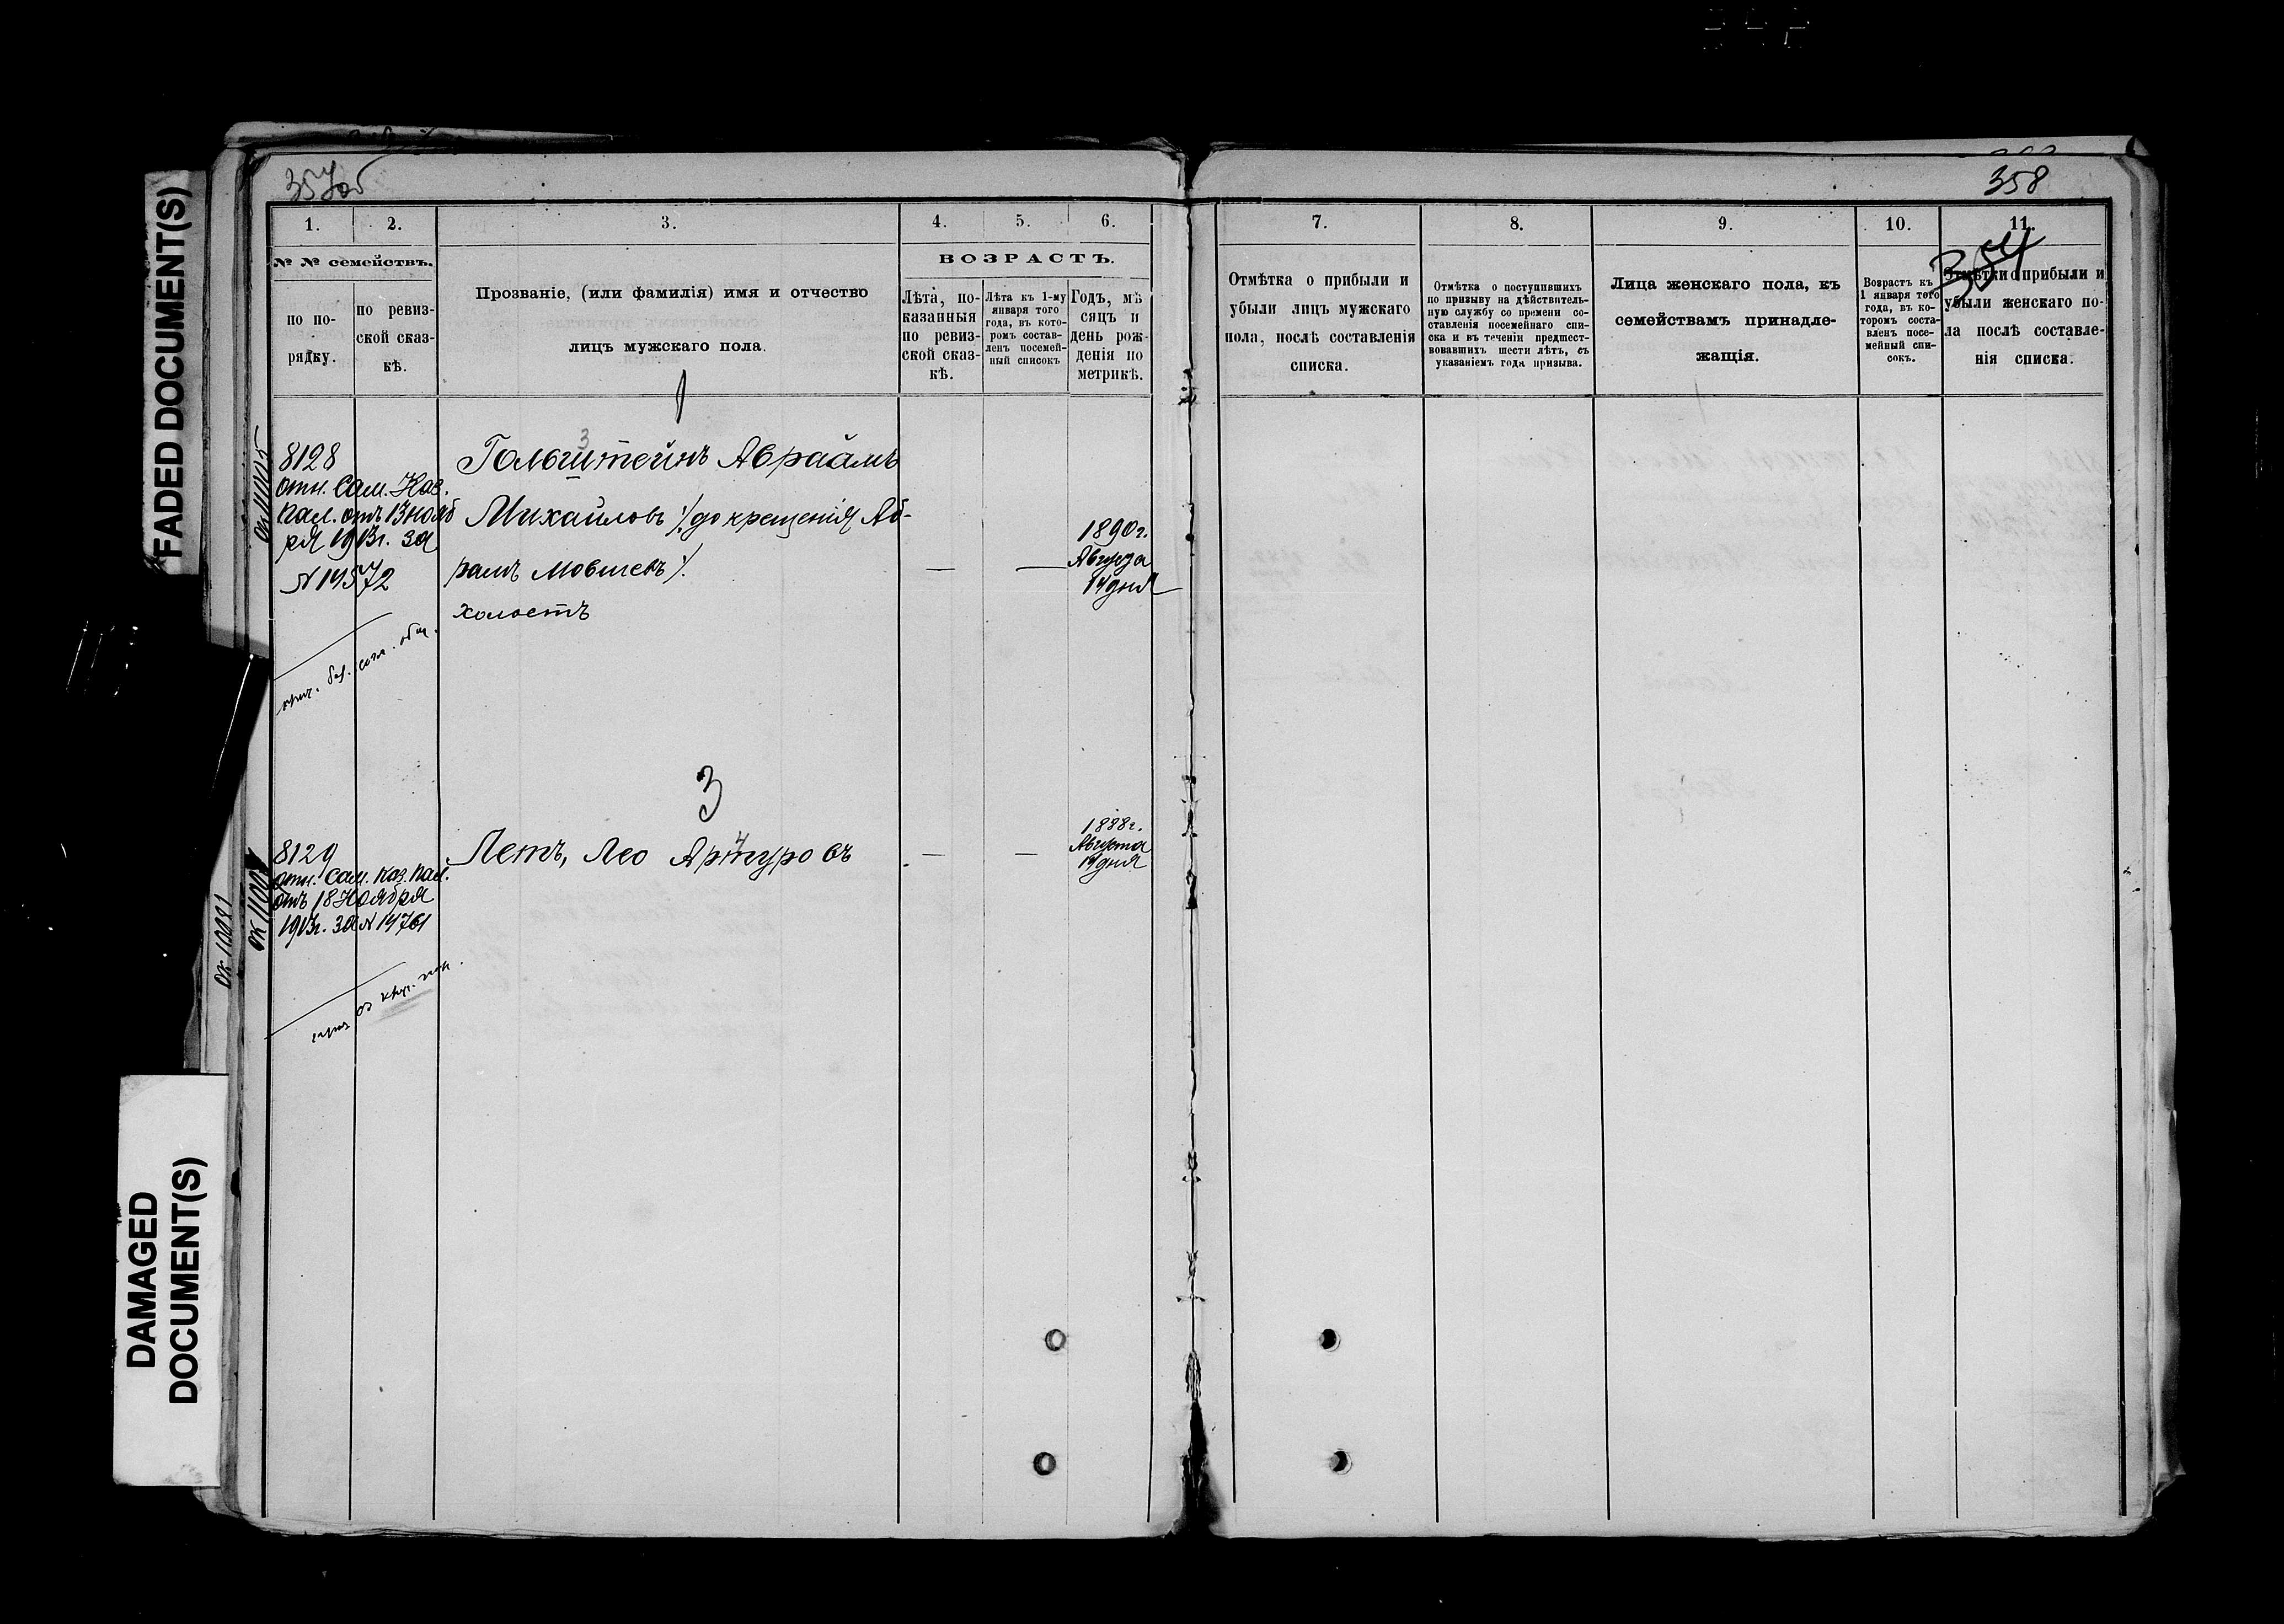 FADED DOCUMENT(S)
DAMAGED
DOCUMENT(S)
358
354
1. 2. 3. 4. 5. 6.
№ № семействъ.
по по-
рядку.
по ревиз-
ской сказ-
кѣ.
Прозваніе, (или фамилія) имя и отчество
лицъ мужскаго пола.
ВОЗРАСТЪ.
Лѣта, по-
казанныя
по ревиз-
ской сказ-
кѣ.
Лѣта къ 1-му
января того
года, въ кото-
ромъ состав-
ленъ посемей-
ный списокъ
Годъ, мѣ
сяцъ и
день рож-
денія по
метрикѣ.
7. 8. 9. 10. 11.
Отмѣтка о прибыли и
убыли лицъ мужскаго
пола, послѣ составленія
списка.
Отмѣтка о поступившихъ
по призыву на дѣйствитель-
ную службу со времени со-
ставленія посемейнаго спи-
ска и въ теченіи предшест-
вовавшихъ шести лѣтъ, съ
указаніемъ года призыва.
Лица женскаго пола, къ
семействамъ принадле-
жащія.
Возрастъ къ
1 января того
года, въ ко-
торомъ соста-
вленъ посе-
мейный спи-
сокъ.
Отмѣтки о прибыли и
убыли женскаго по-
ла послѣ составле-
нія списка.
1
8128
отн. Сам. Каз.
Пал. отъ 13 нояб
ря 1913г. за
№ 19572
3
Гольштейнъ Авраамъ
Михайловъ ⁒ до крещенія Аб-
рамъ Мовшевъ ⁒.
холостъ
— —
1890г.
Августа
14 дня
3
8129
отн. Сам. Каз. Пал.
отъ 18 Ноября
1913г. за №
4
Летъ, Лео Артуровъ
— —
1888г.
Августа
19 дня
ок 11005
ок 11004
ок 10091